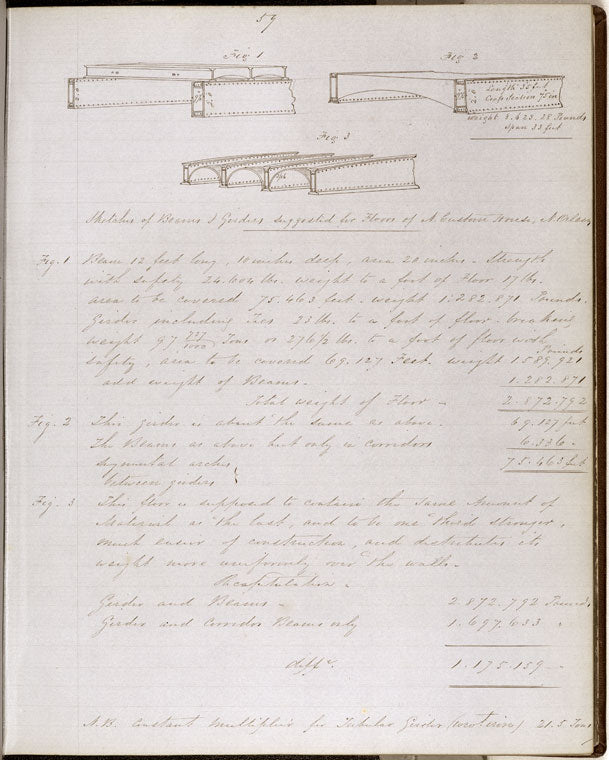 59
Fig 1
Fig 2
Length 35 feet
Cross section 75 in
weight 5.623.28 Pounds
span 33 feet
Fig 3
Sketches of Beams & Girders suggested for Floors of N. Custom House, N. Orleans
Fig. 1 Beam 12 feet long, 10 inches deep, area 20 inches. Strength
with safety 24.004 lbs. weight to a foot of Floor 17 lbs.
area to be covered 75.463 feet. weight 1.282.871 Pounds.
Girder including Ties 23 lbs. to a foot of floor. breaking
weight 97 727/1000 Tons or 276 1/2 lbs. to a foot of floor with
safety, area to be covered 69.127 Feet. weight 1.589.921 Pounds
add weight of Beams. 1.282.871
Total weight of Floor - 2.872.792
Fig. 2 This girder is about the same as above. 69.127 feet
The Beams as above but only in corridors 6.336.
segmental arches 75.463 feet
between girders
Fig. 3 This floor is supposed to contain the same amount of
Material as the last, and to be one third stronger,
much easier of construction, and distributes its
weight more uniformly over the walls.
Recapitulation -
Girder and Beams - 2.872.792 Pounds
Girder and corridor Beams only 1.697.633 "
diffe. 1.175.159 -
N.B. Constant multiplier for Tubular Girder 21.5 Tons